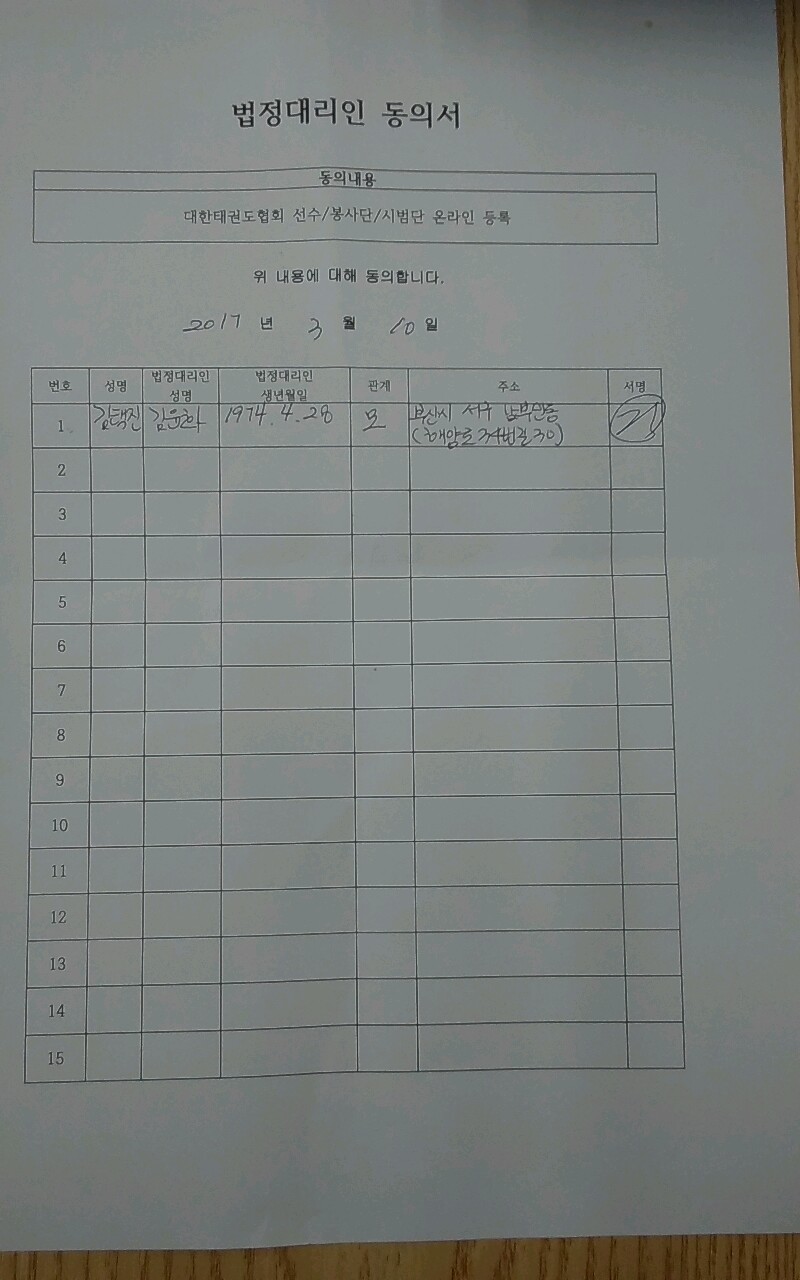 법정대리인 동의서
동의내용
대한태권도협회 선수/봉사단/시범단 온라인 등록
위 내용에 대해 동의합니다.
2017 년 3 월 10 일
번호 성명 법정대리인 성명 법정대리인 생년월일 관계 주소 서명
1 김택진 김윤화 1974. 4. 28 모 부산시 서구 남부민동
(해양로 34번길 30)
2
3
4
5
6
7
8
9
10
11
12
13
14
15